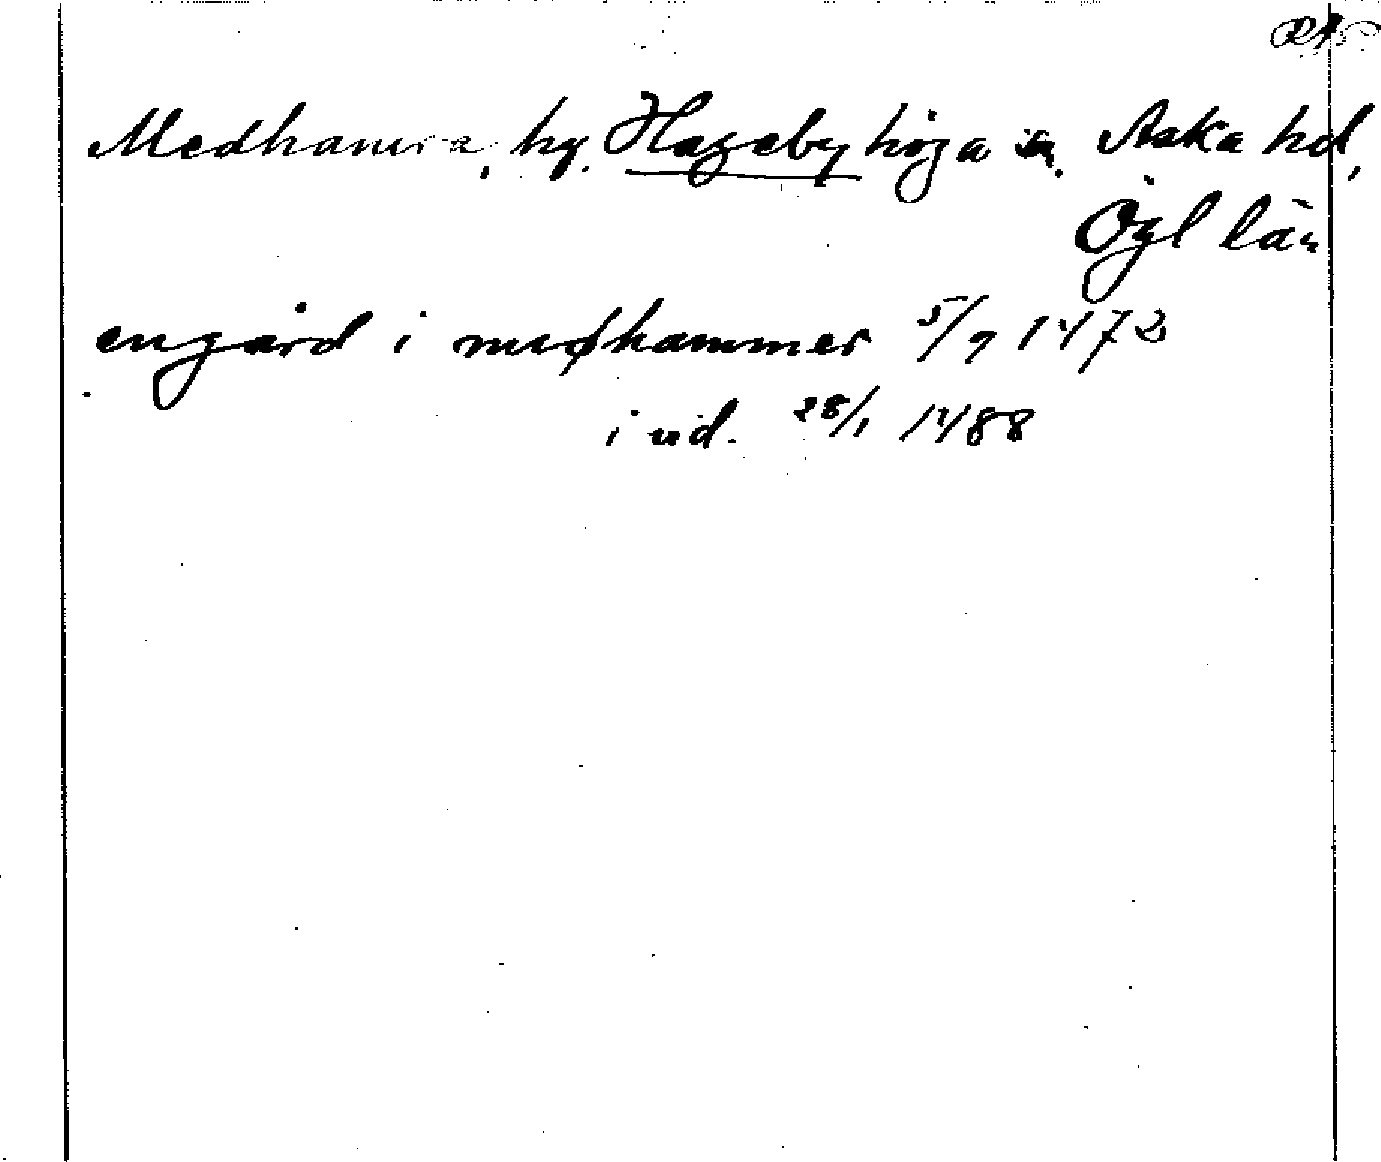 Medhamra, by. Hageby höga sn. Aska hd,
Ögl län
en gård i međhammer 5/9 1472
i vid. 28/1 1488